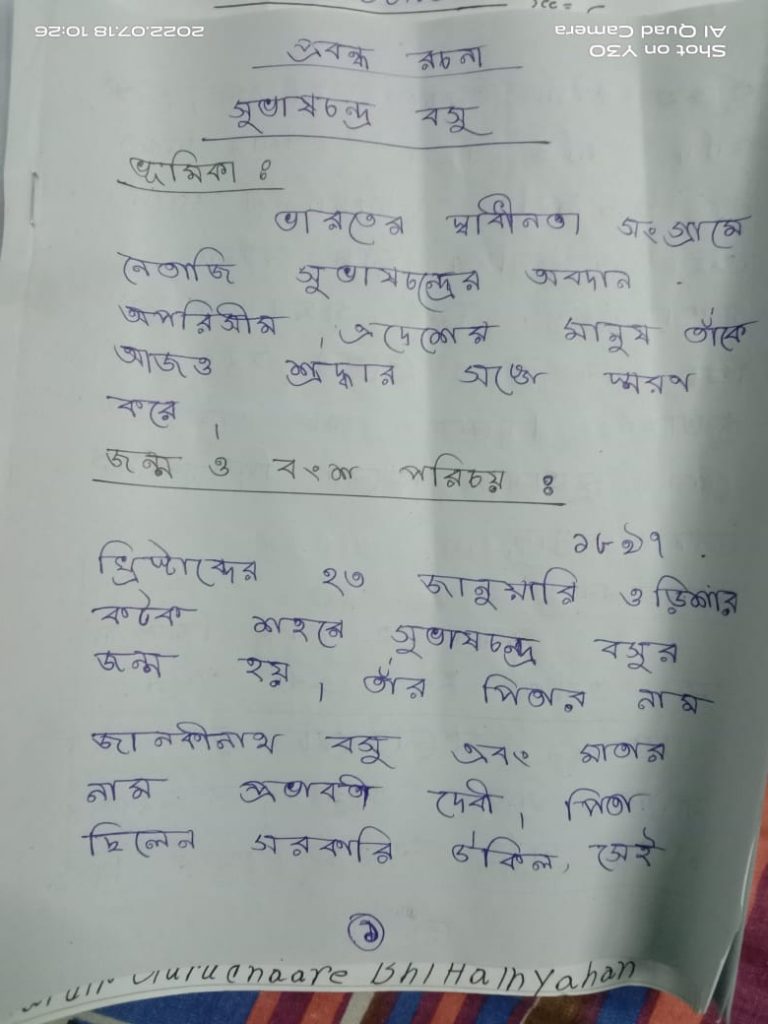 প্রবন্ধ রচনা
সুভাষচন্দ্র বসু
ভূমিকা :
ভারতের স্বাধীনতা সংগ্রামে
নেতাজি সুভাষচন্দ্রের অবদান
অপরিসীম । এদেশের মানুষ তাঁকে
আজও শ্রদ্ধার সঙ্গে স্মরণ
করে ।
জন্ম ও বংশ পরিচয় :
১৮৯৭
খ্রিস্টাব্দের ২৩ জানুয়ারি ওড়িশার
কটক শহরে সুভাষচন্দ্র বসুর
জন্ম হয় । তাঁর পিতার নাম
জানকীনাথ বসু এবং মাতার
নাম প্রভাবতী দেবী । পিতা
ছিলেন সরকারি উকিল, সেই
১
Shot on Y30
AI Quad Camera
2022.07.18 10:26